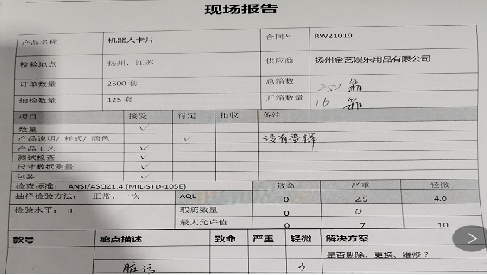 现场报告
产品名称 机器人卡片 合同# RW21019
检验地点 扬州，江苏 供应商 扬州金艺娱乐用品有限公司
订单数量 2500 套 总箱数 箱
抽检数量 125 套 开箱数量 16 箱
项目 接受 待定 拒收 备注
数量 ✓
产品说明/样式/颜色 ✓ 没有
产品工艺 ✓
测试检查 ✓
尺寸数据测量 ✓
包装 ✓
检查标准: ANSI/ASQZ1.4 (MIL-STD-105E) 致命 严重 轻微
抽样检验方法: 正常， 一次 AQL 0 2.5 4.0
检验水平: II 取疵数量 0 0
最大允许值 0 7 10
款号 疵点描述 致命 严重 轻微 解决方案
是否剔除，更换，维修？
脏污